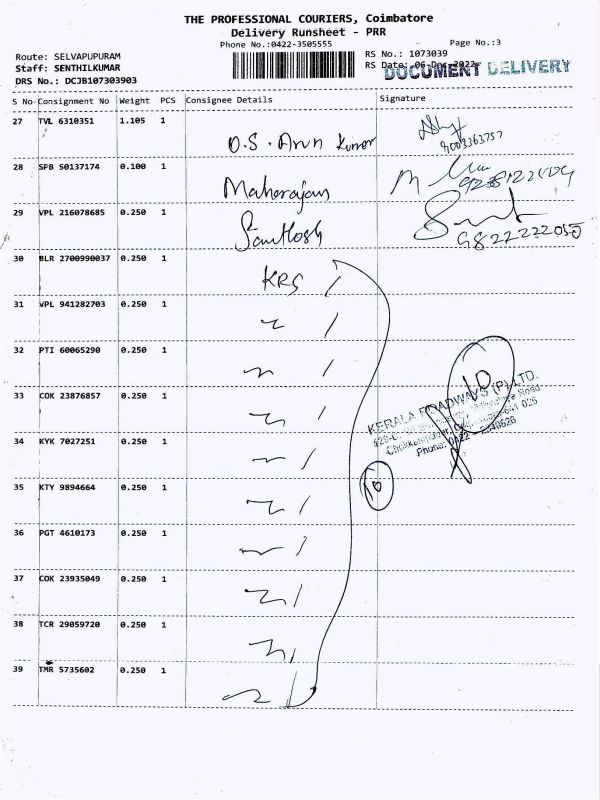 THE PROFESSIONAL COURIERS, Coimbatore
Delivery Runsheet - PRR
Phone No.:0422-3505555
Page No.:3
Route: SELVAPUPURAM
RS No.: 1073039
Staff: SENTHILKUMAR
RS Date: 06-Dec-2022
DRS No.: DCJB107303903
DOCUMENT DELIVERY
S No Consignment No Weight PCS Consignee Details Signature
27 TVL 6310351 1.105 1 O.S. Arun Kumar
9003363757
28 SPB 50137174 0.100 1 Maharajan
29 VPL 216078685 0.250 1 Santhosh
9822222050
30 BLR 2700990037 0.250 1 KRS
31 VPL 941282703 0.250 1
32 PTI 60065290 0.250 1
33 COK 23876857 0.250 1
10
KERALA ROADWAYS (P) LTD.
34 KYK 7027251 0.250 1
Phone: 0422
35 KTY 9894664 0.250 1
10
36 PGT 4610173 0.250 1
37 COK 23935049 0.250 1
38 TCR 29059720 0.250 1
39 TMR 5735602 0.250 1